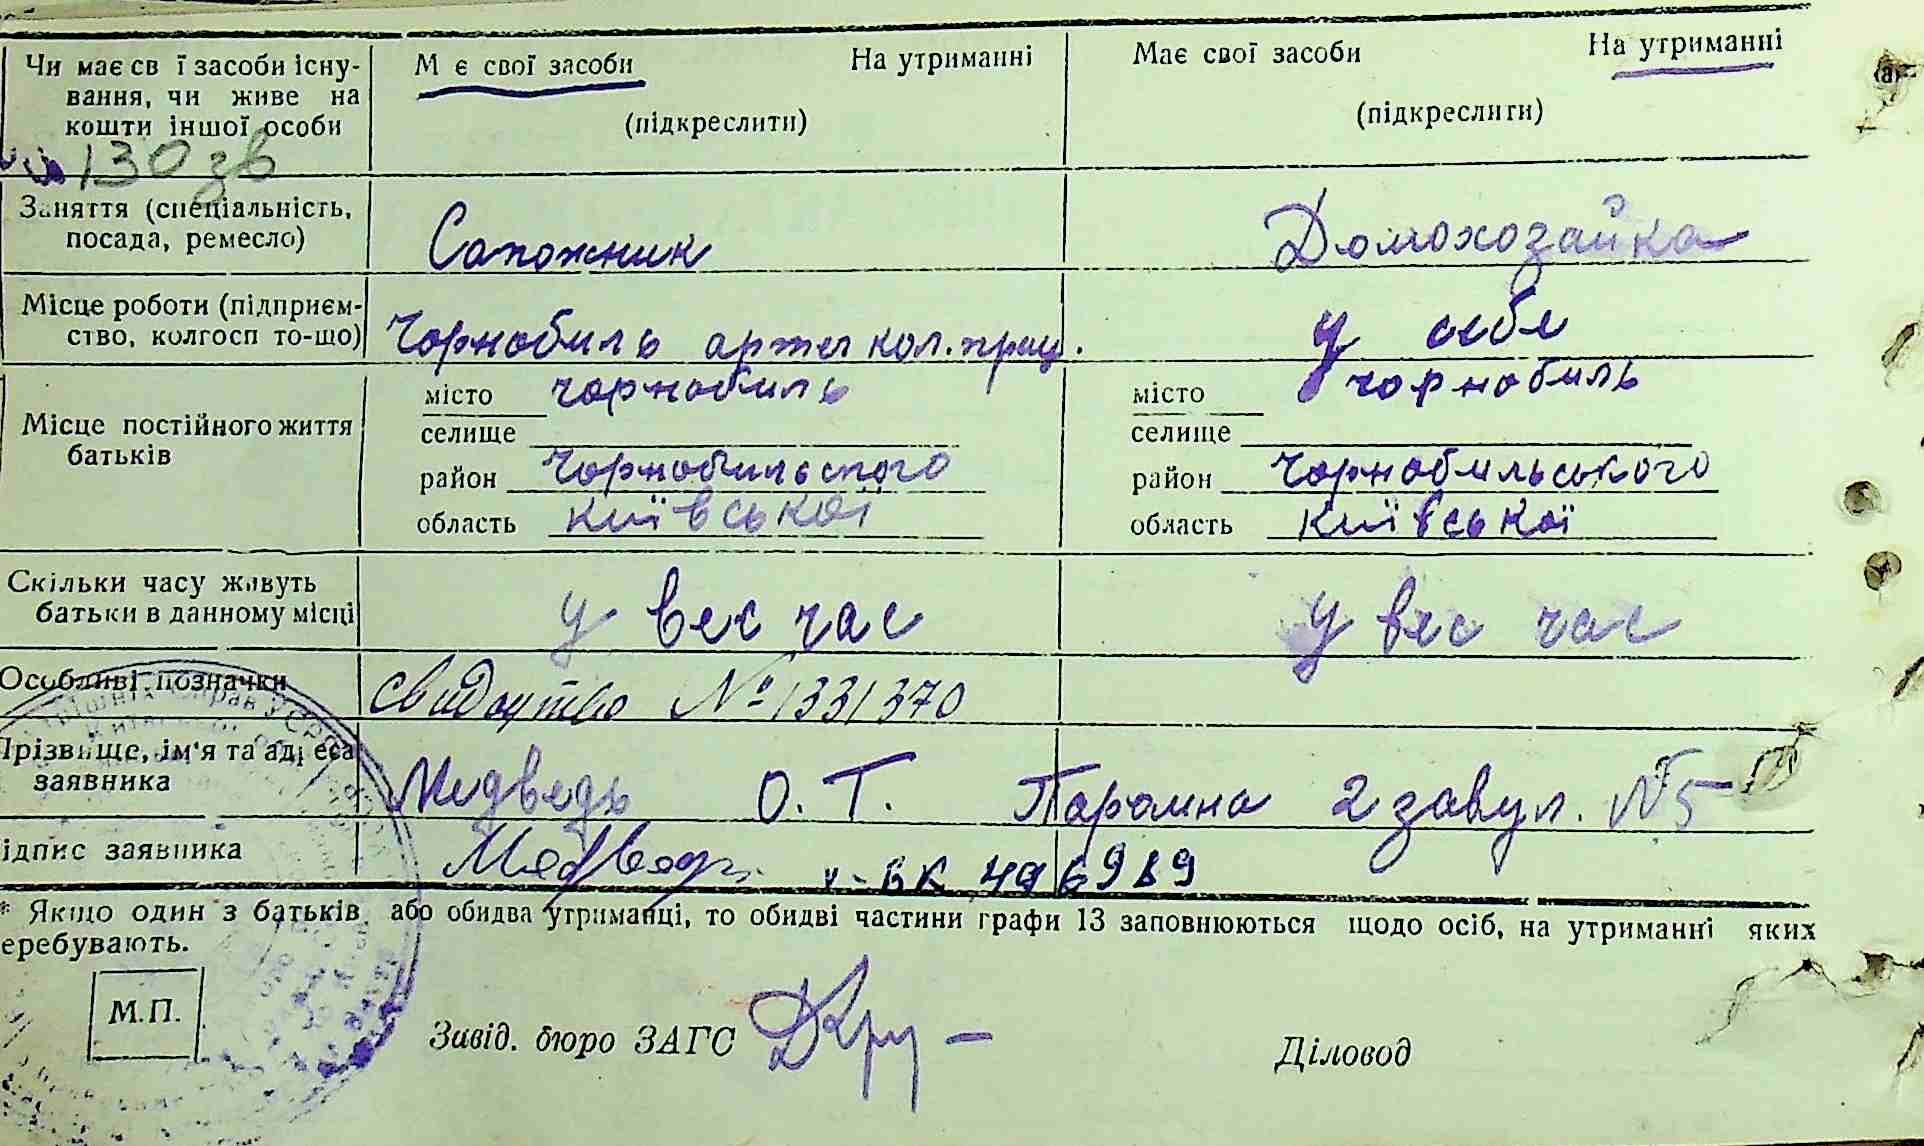 Чи має св ї засоби існу-
вання, чи живе на
кошти іншої особи
М є свої засоби На утриманні
(підкреслити)
Має свої засоби На утриманні
(підкреслити)
130 зв
Заняття (спеціальність,
посада, ремесло)
Сапожник
Домохозайка
Місце роботи (підприєм-
ство, колгосп то-що)
Чорнобиль артел кол. прац.
у себе
Місце постійного життя
батьків
місто чорнобиль
селище
район чорнобильского
область київської
місто чорнобиль
селище
район чорнобильського
область київської
Скільки часу живуть
батьки в данному місці
у вес час
у вес час
Особливі позначки
свидоцтво № 1331370
Прізвище, ім'я та адреса
заявника
Медведь О. Т. Паромна 2 завул. № 5
ідпис заявника
Медведь V-БК 496989
* Якщо один з батьків або обидва утриманці, то обидві частини графи 13 заповнюються щодо осіб, на утриманні яких
еребувають.
М.П.
Завід. бюро ЗАГС
Діловод